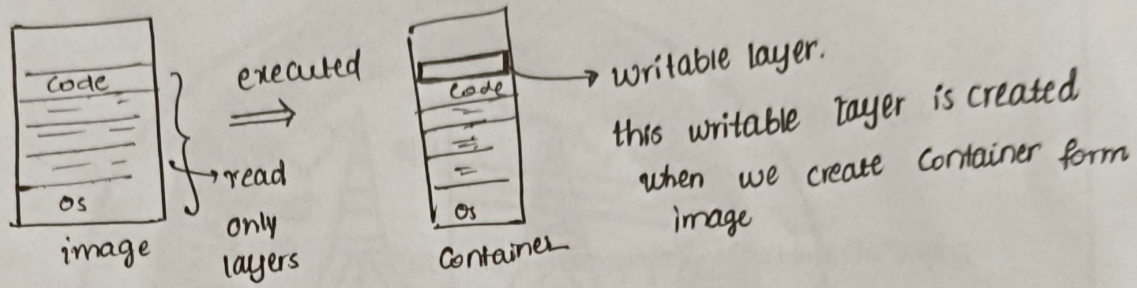 code
OS
image
read
only
layers
executed
code
Os
Container
writable layer.
this writable layer is created
when we create Container form
image